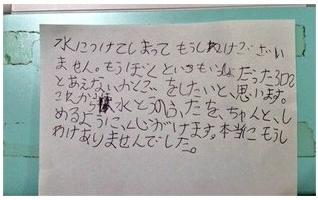 水につけてしまってもうしわけござい
ません。もうぼくといつもいっしょだった3DS
とあえないかくごをしたいと、思います。
これから水とうのふたを、ちゃんと、し
めるように、心がけます。本当にもうし
わけありませんでした。